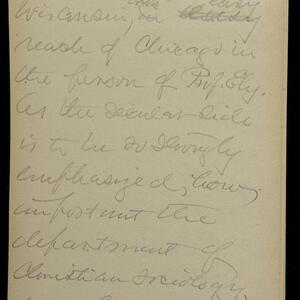 easy
Wisconsin, in
reach of Chicago in
the person of Prof. Ely.
As the secular side
is to be so strongly
emphasized, how
important the
department of
Christian Sociology